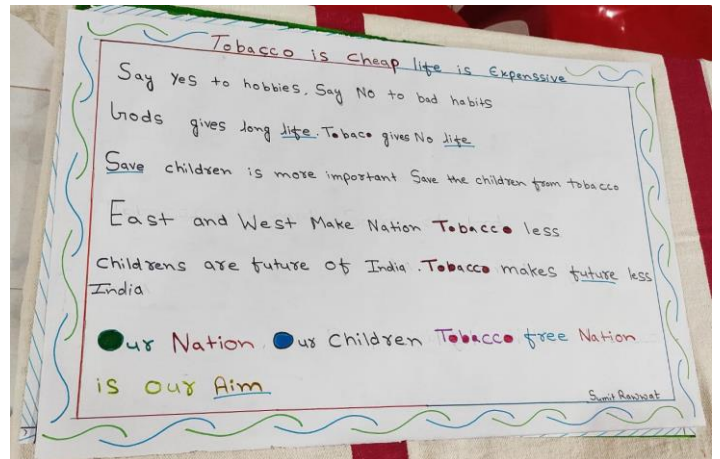 Tobacco is cheap life is Expenssive
Say yes to hobbies. Say No to bad habits
Gods gives long life. Tobaco gives No life
Save children is more important Save the children from tobacco
East and West Make Nation Tobacco less
Childrens are future of India. Tobacco makes future less
India
Our Nation Our Children Tobacco free Nation
is our Aim
Sumit Rawwat